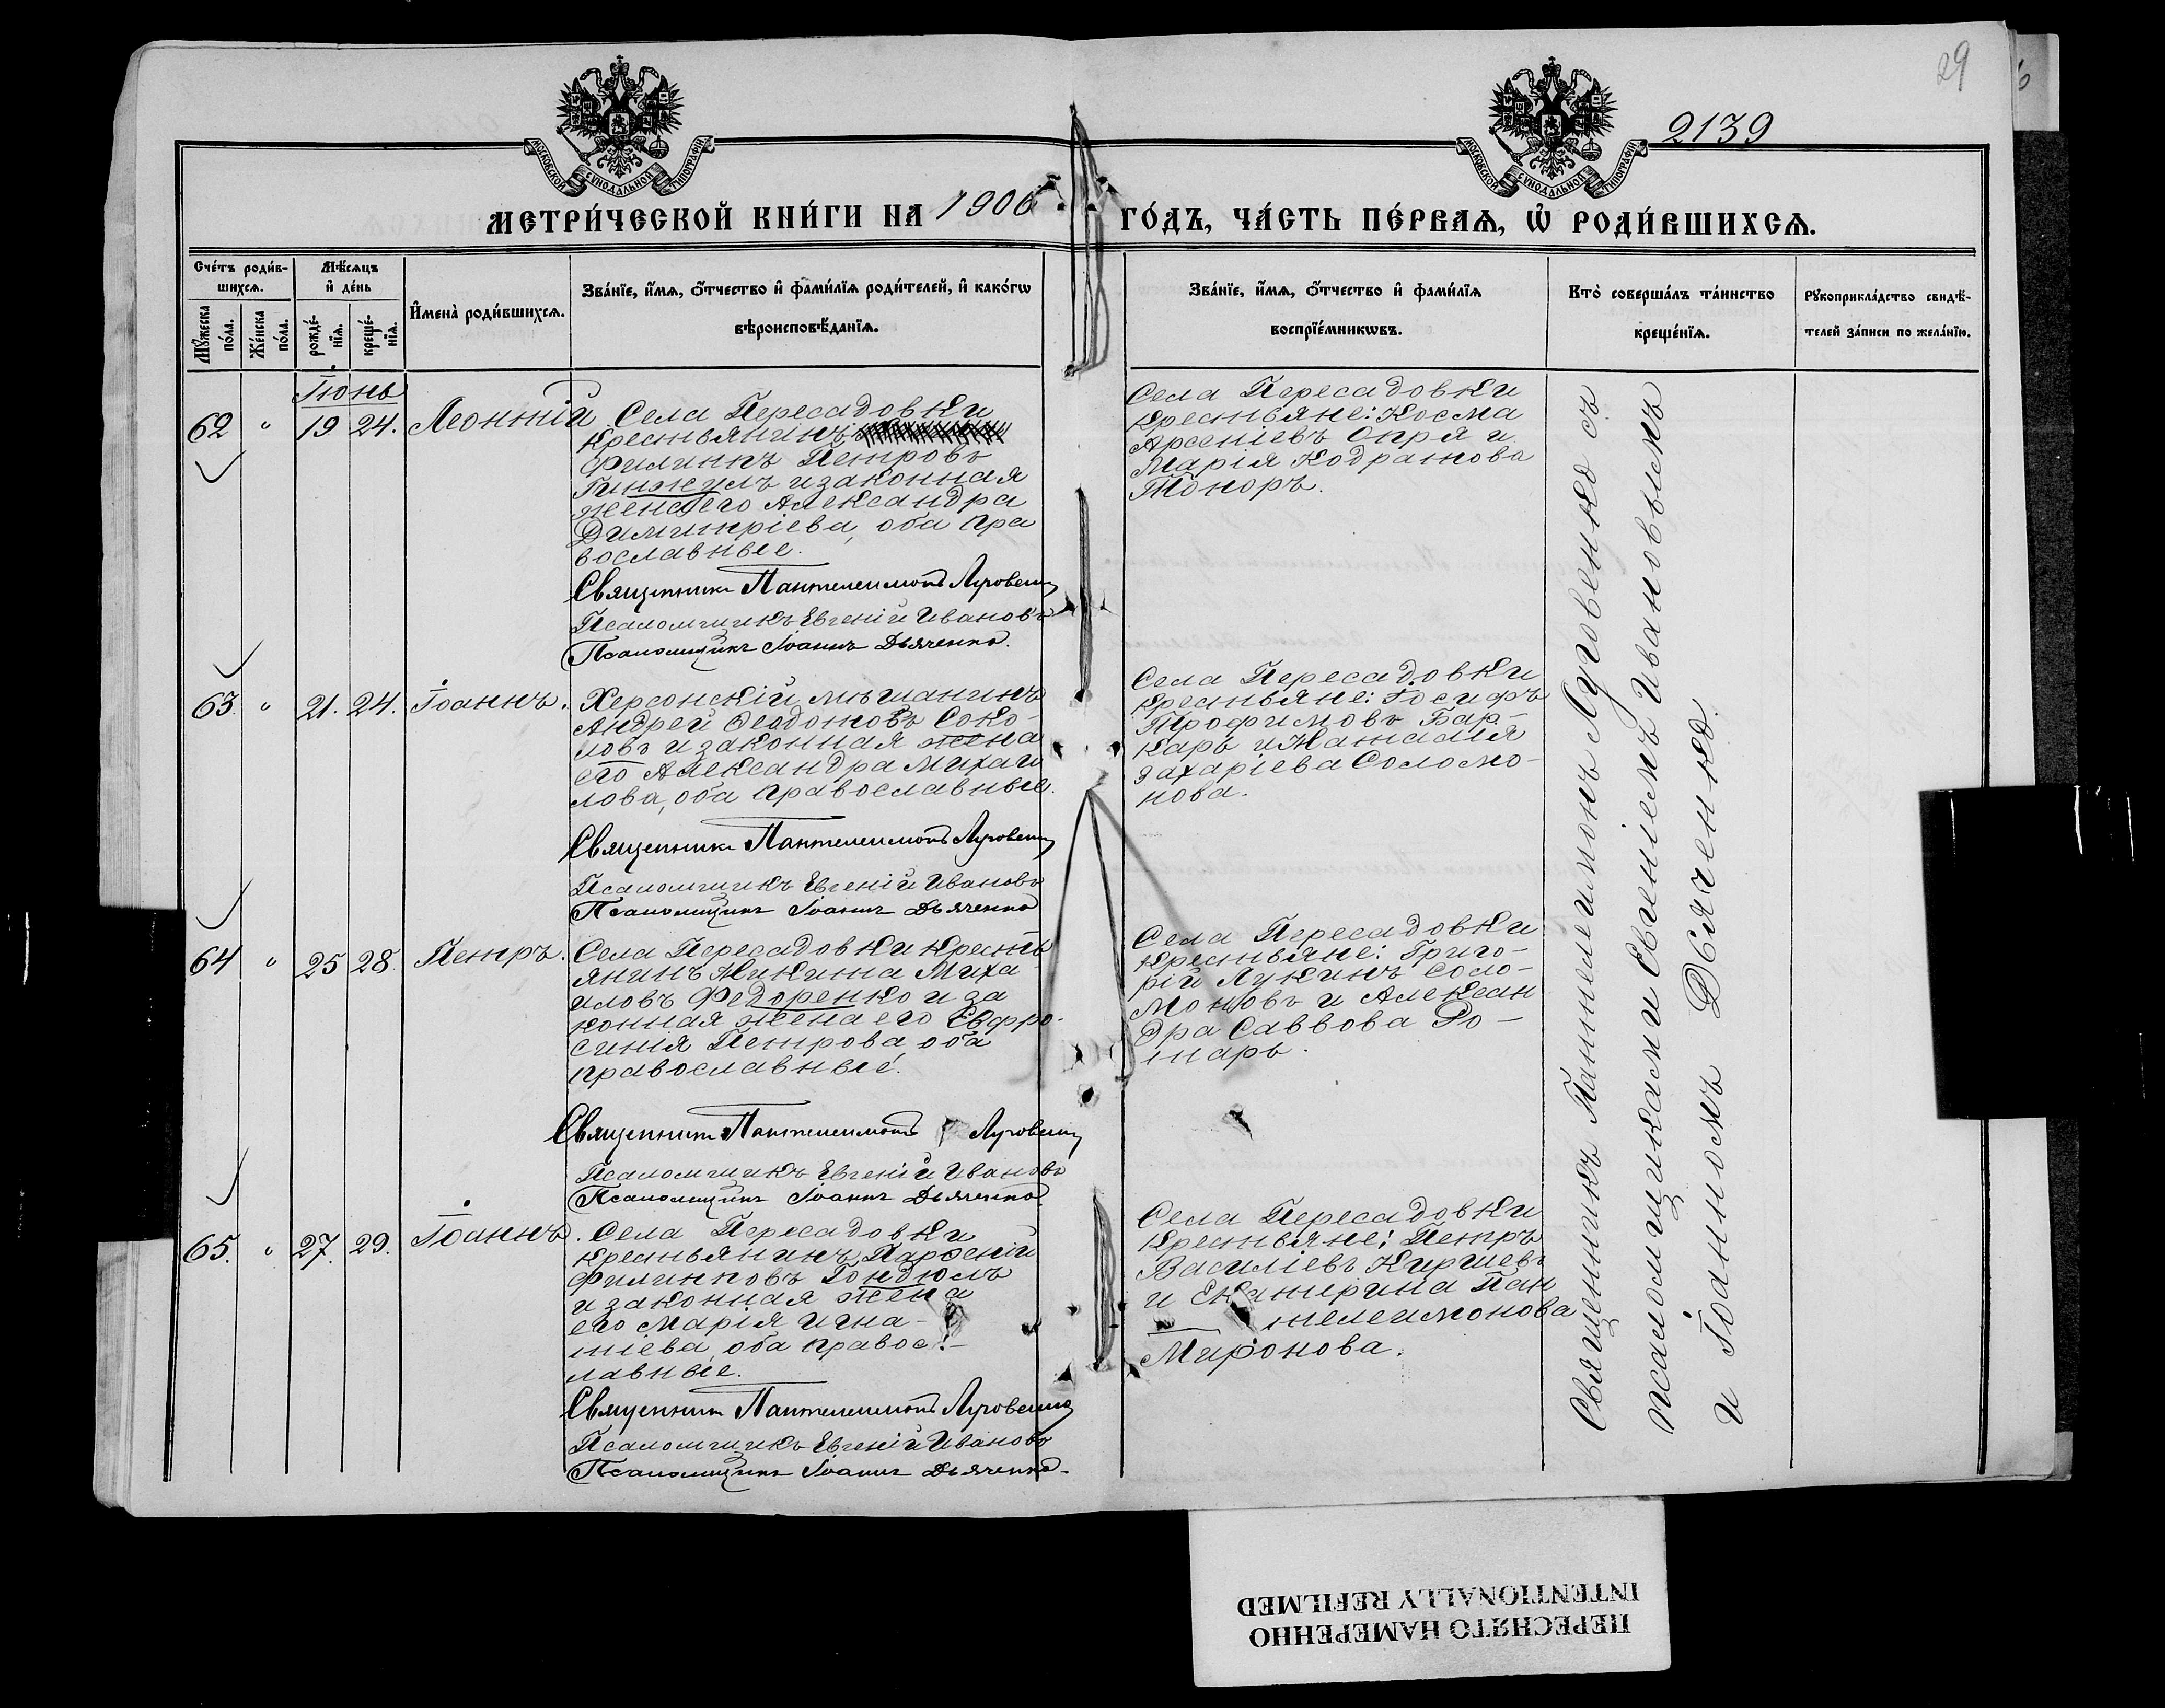 29
2139
МОСКОВСКОЙ СѴНОДАЛЬНОЙ ТИПОГРАФІИ
МОСКОВСКОЙ СѴНОДАЛЬНОЙ ТИПОГРАФІИ
МЕТРИ́ЧЕСКОЙ КНИ́ГИ НА 1906 ГО́ДЪ, ЧА́СТЬ ПЕ́РВАѦ, Ѡ҆ РОДИ́ВШИХСѦ.
Сче́тъ роди́в-
шихсѧ.
Мꙋ́жеска по́ла.
Же́нска по́ла.
Мѣ́сѧцъ
и҆ де́нь
рожде́-
нїѧ.
креще́-
нїѧ.
И҆мена̀ роди́вшихсѧ.
Зва́нїе, и҆́мѧ, ѻ҆́тчество и҆ фами́лїѧ роди́телей, и҆ како́гѡ
вѣроисповѣ́данїѧ.
Зва́нїе, и҆́мѧ, ѻ҆́тчество и҆ фами́лїѧ
воспрїе́мникѡвъ.
Кто̀ соверша́лъ та́инство
креще́нїѧ.
Рꙋкоприкла́дство свидѣ́-
телей за́писи по жела́нїю.
Іюнь
62 " 19 24. Леонтій
Села Пересадовки
крестьянинъ
Филиппъ Петровъ
Гинжулъ и законная
жена его Александра
Димитріева, оба пра
вославные.
Священникъ Пантелеимонъ Луговенко
Псаломщикъ Евгеній Ивановъ
Псаломщикъ Іоаннъ Дьяченко.
Села Пересадовки
крестьяне: Косма
Арсеніевъ Опря и
Марія Кодратова
Топоръ.
63. " 21. 24. Іоаннъ.
Херсонскій мѣщанинъ
Андрей Феодотовъ Соко-
ловъ и законная жена
его Александра Михаи
лова, оба православные.
Священникъ Пантелеимонъ Луговенко
Псаломщикъ Евгеній Ивановъ
Псаломщикъ Іоаннъ Дьяченко
Села Пересадовки
крестьяне: Іосифъ
Трофимовъ Бар-
карь и Наталія
Захаріева Соломо-
нова.
64 " 25 28. Петръ.
Села Пересадовки кресть
янинъ Никита Миха
иловъ Федоренко и за
конная жена его Евфро-
синія Петрова оба
православные.
Священникъ Пантелеимонъ Луговенко
Псаломщикъ Евгеній Ивановъ
Псаломщикъ Іоаннъ Дьяченко.
Села Пересадовки
крестьяне: Григо-
рій Лукинъ Соло-
моновъ и Алексан
дра Саввова Ро-
тарь.
65. " 27. 29. Іоаннъ.
Села Пересадовки
крестьянинъ Парѳеній
Филипповъ Гондюлъ
и законная жена
его Марія Игна-
тіева, оба правос-
лавные.
Священникъ Пантелеимонъ Луговенко
Псаломщикъ Евгеній Ивановъ
Псаломщикъ Іоаннъ Дьяченко.
Села Пересадовки
крестьяне: Петръ
Василіевъ Киршевъ
и Екатерина Пан
телеимонова
Миронова.
Священникъ Пантелеимонъ Луговенко съ
псаломщиками Евгеніемъ Ивановымъ
и Іоанномъ Дьяченко.
ПЕРЕСНЯТО НАМЕРЕННО
INTENTIONALLY REFILMED